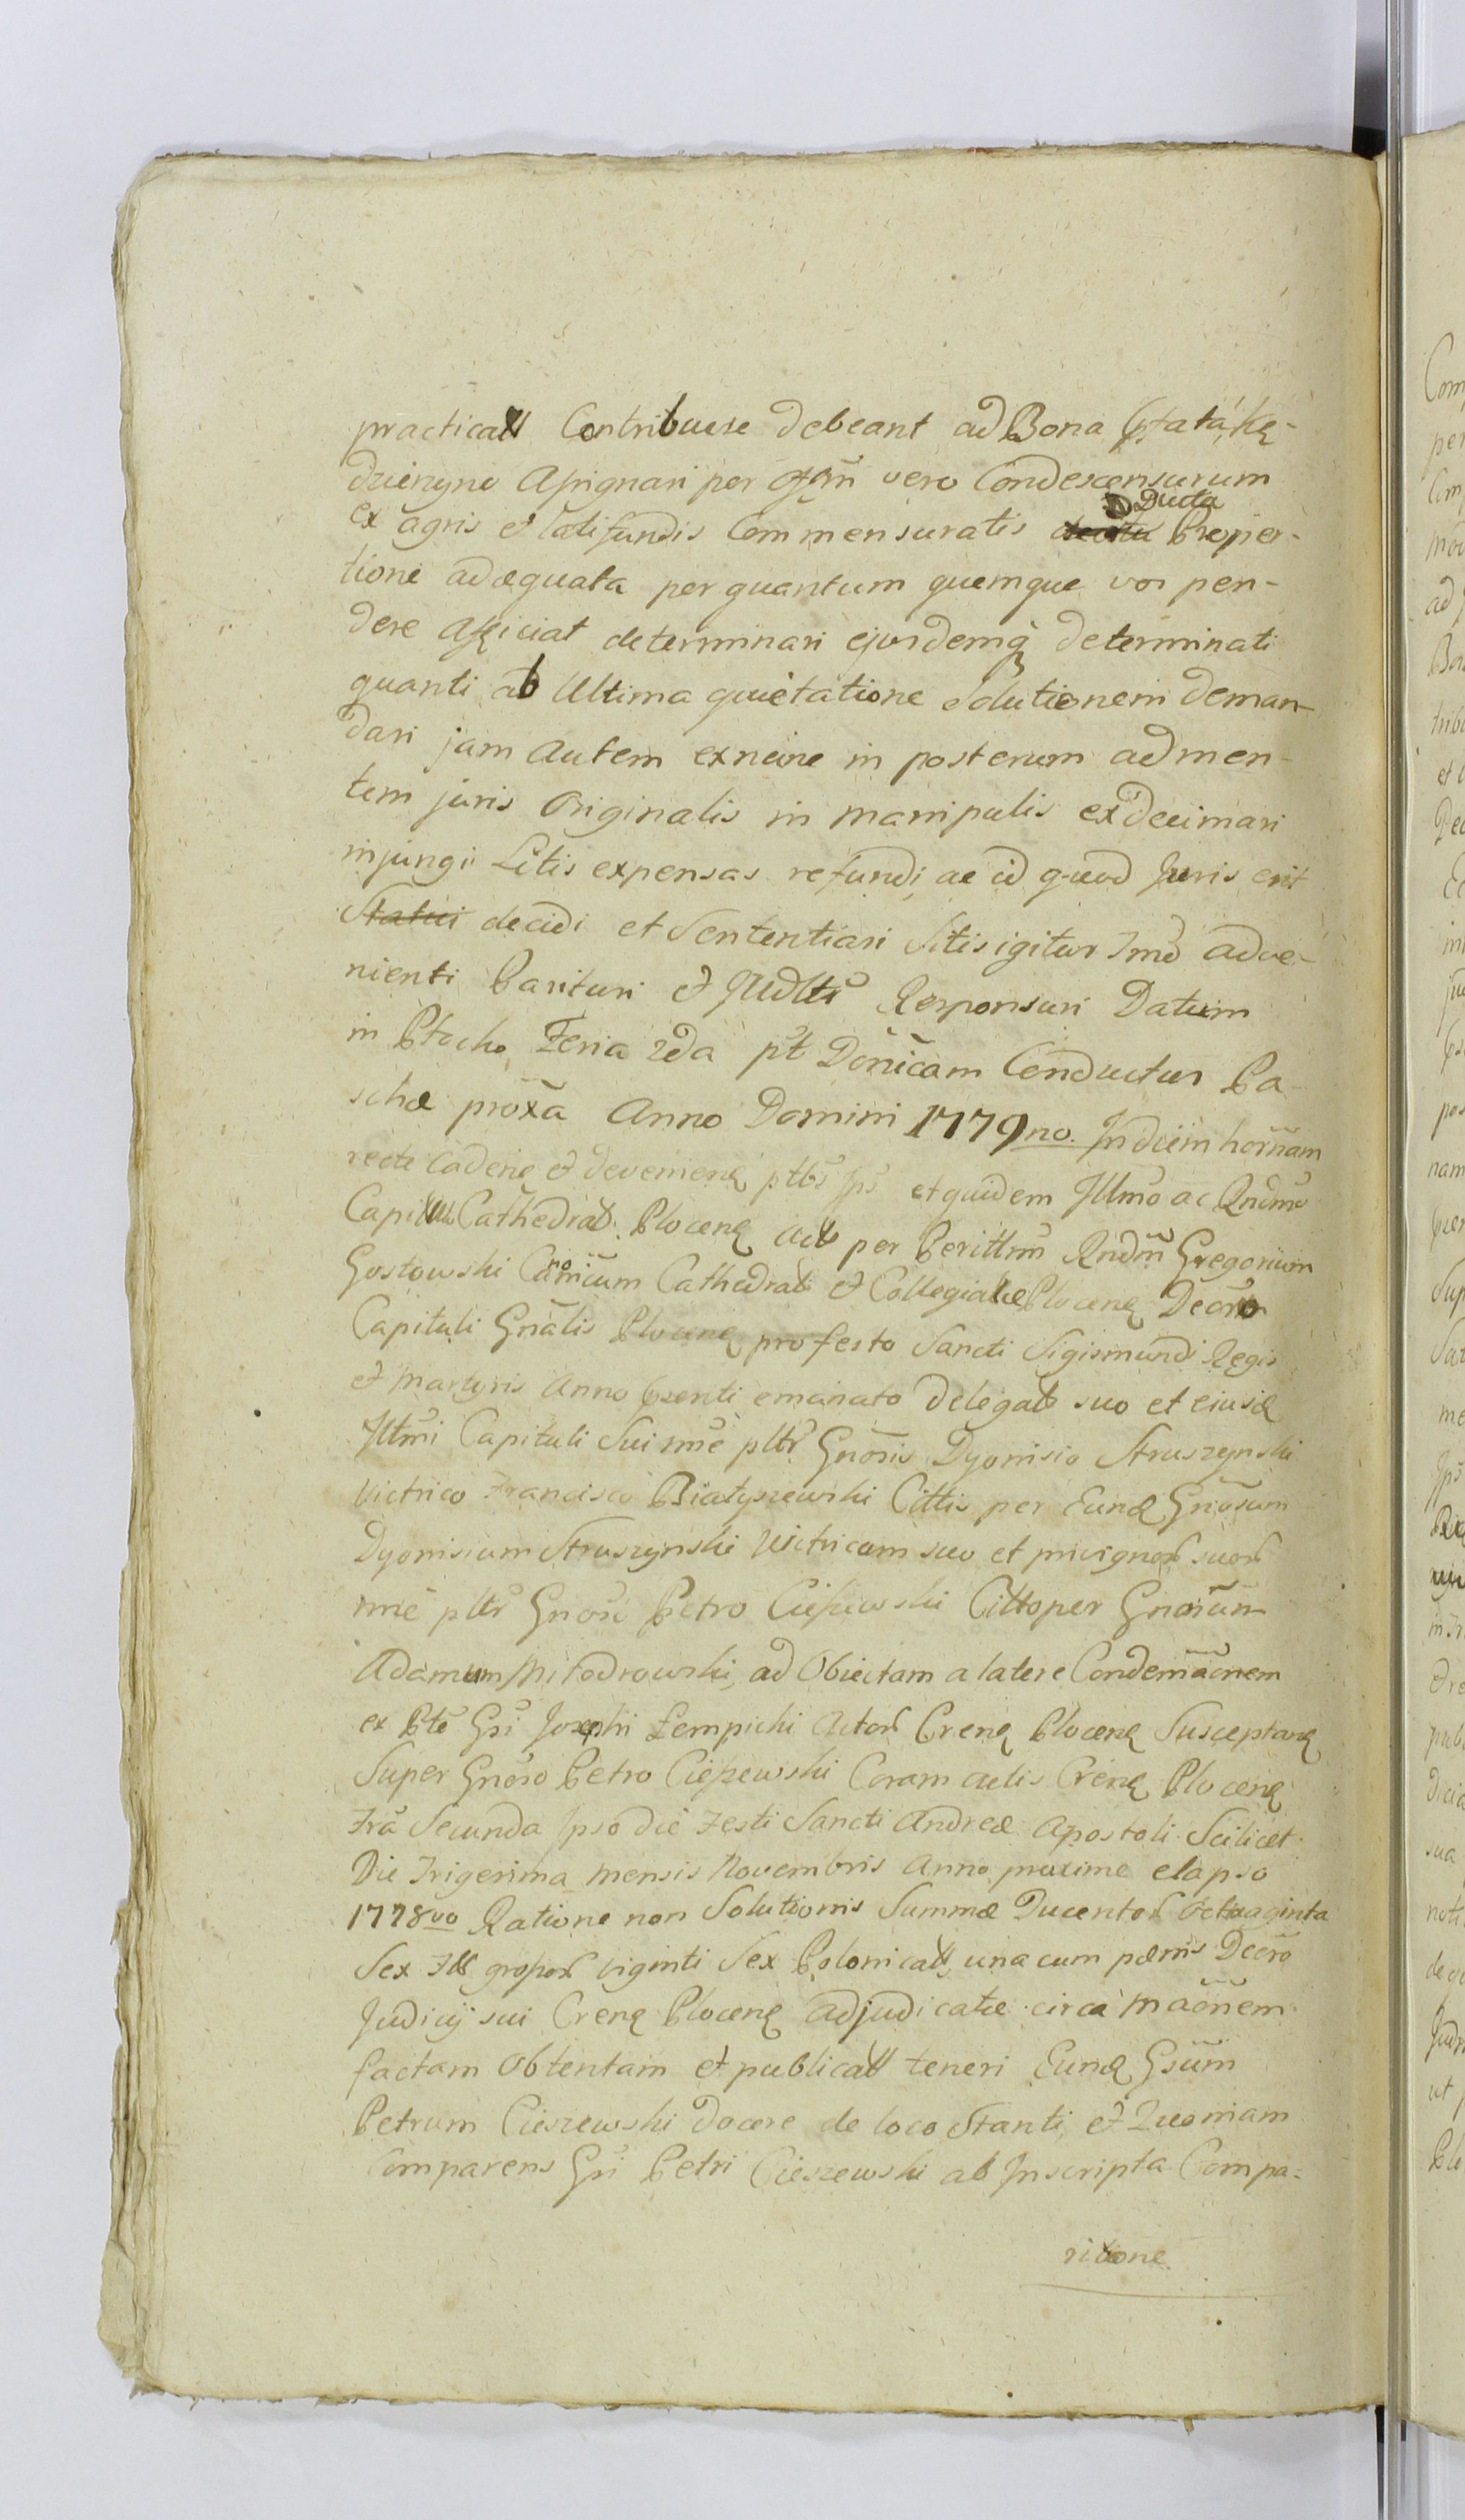 practicatt Contribuere debeant ad Bona
Assignari per vero Condescensurum
Ducta
ex agris et latifundis Commensuratis Propor-
tione adæquata per quantum quemque vos pen-
dere afficiat determinari ejusdemq determinati
quanti ab Ultima quietatione Solutionem deman-
dari jam autem exnunc in posterum admen-
tem juris Originalis in manipulis exdecimari
injungi Litis expensas refundi, ac id quod Juris erit
Statui decidi et Sententiari Sitis igitur Tmō adve-
nienti Parituri et Responsuri Datum
in Plocko Feria 2da pt Donicam Conductus Pa
schæ proxā Anno Domini 1779no. In diem hornam
recte caden et devenien ptbs Ips et quidem Illmo ac Rndmo
Cathedral: Plocen act per Perillrm Rndm Gregorium
Gostowski Canonicum Cathedral et Collegiatæ Plocen Decro
Capituli Gnalis Plocen profesto Sancti Sigismundi Regis
et Martyris Anno psenti emanato delegat suo et eiusd
Illmi Capituli Sui nne pltr Gnosis Dyonisio Struszynski
Victrico Francisco Białyszewski Cittis per Eund Gnosum
Dyonisium Struszynski Victricum suo et privignor suor
nne pltr Gnoso Petro Cieszewski Citto per Gnosum
Adamum Mitodrowski, ad Obiectam a latere Condemnacnem
ex Pte Gsi Josephi Łempicki Actor Cren Plocen Susceptan
Super Gnoso Petro Cieszewski Coram actis Cren Plocen
Fra Secunda Ipso die Festi Sancti Andreæ Apostoli Scilicet
Die Trigesima mensis Novembris Anno proxime elapso
1778vo Ratione non Solutionis Summæ Ducentor Octuaginta
Sex Fll grossor viginti Sex Polonicatt, una cum pænis Decro
Judicij sui Cren Plocen adjudicatæ circa maonem
factam Obtentam et publicatt teneri Eund Gsum
Petrum Cieszewski docere de loco Stanti, et Quoniam
Comparens Gsi Petri Cieszewski ab Inscripta Compa-
ritione